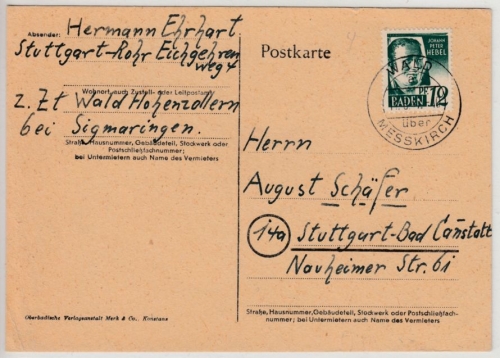 Absender: Hermann Ehrhart
Stuttgart-Rohr Eichgehren
weg 4
Wohnort, auch Zustell- oder Leitpostamt
z. Zt Wald Hohenzollern
bei Sigmaringen.
Straße, Hausnummer, Gebäudeteil, Stockwerk oder
Postschließfachnummer;
bei Untermietern auch Name des Vermieters
Oberbadische Verlagsanstalt Merk & Co., Konstanz
Postkarte
JOHANN
PETER
HEBEL
BADEN
Pf
12
WALD
über
MESSKIRCH
Herrn
August Schäfer
14a Stuttgart-Bad Canstatt
Nauheimer Str. 61
Straße, Hausnummer, Gebäudeteil, Stockwerk oder Postschließfach-
nummer; bei Untermietern auch Name des Vermieters